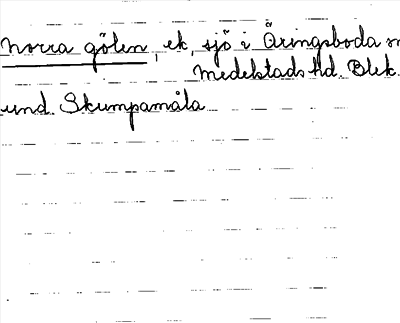 Norra gölen, ek, sjö i Äringsboda sn
Medelstads hd. Blek.
und. Skumpamåla